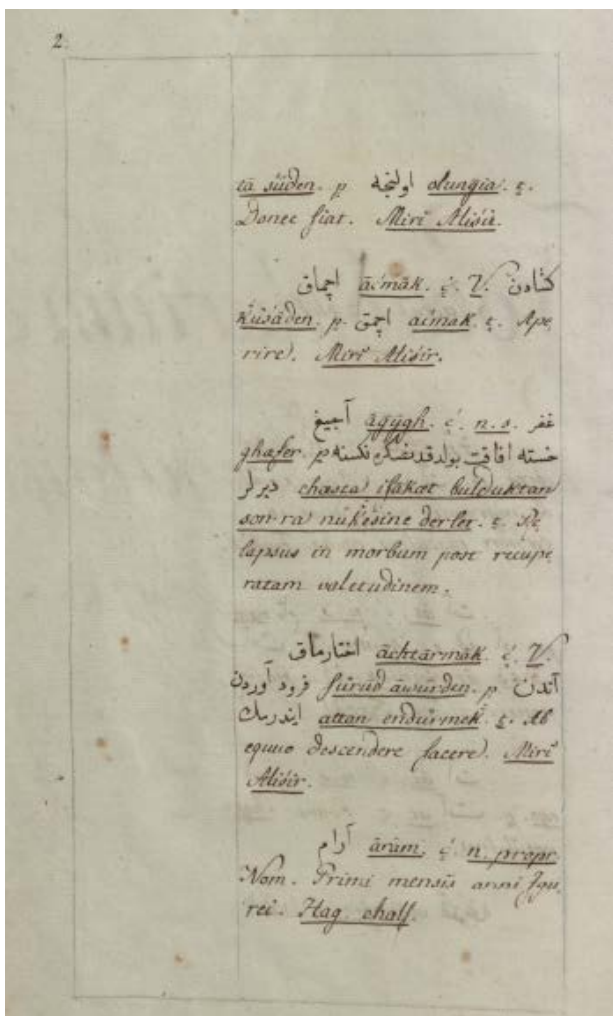 2.
tā šüden. p. اولنجه olungia. t.
Donec fiat. Mirī Ališir.
اچماق āćmāk. ć. V. كشادن
Kušāden. p. اچمق aćmak. t. Ape,
rire. Mirī Ališir.
آجيغ āgÿgh. ć. n. s. غفر
ghæfer. p خسته افاقت بولدقدنصكره نكسنه
ديرلر chæsta ifākæt bulduktan
son-ra nükësine derler. t. Re,
lapsus in morbum post recupe,
ratam valetudinem.
اختارماق āchtārmāk. ć. V.
فرود آوردن fürūd āwürden. p آتدن
ايندرمك attan endürmek. t. Ab
equuo descendere facere. Mirī
Ališir.
آرام ārām. ć. n. propr.
Nom. Primi mensis anni Igu,
rei. Hag. chalf.